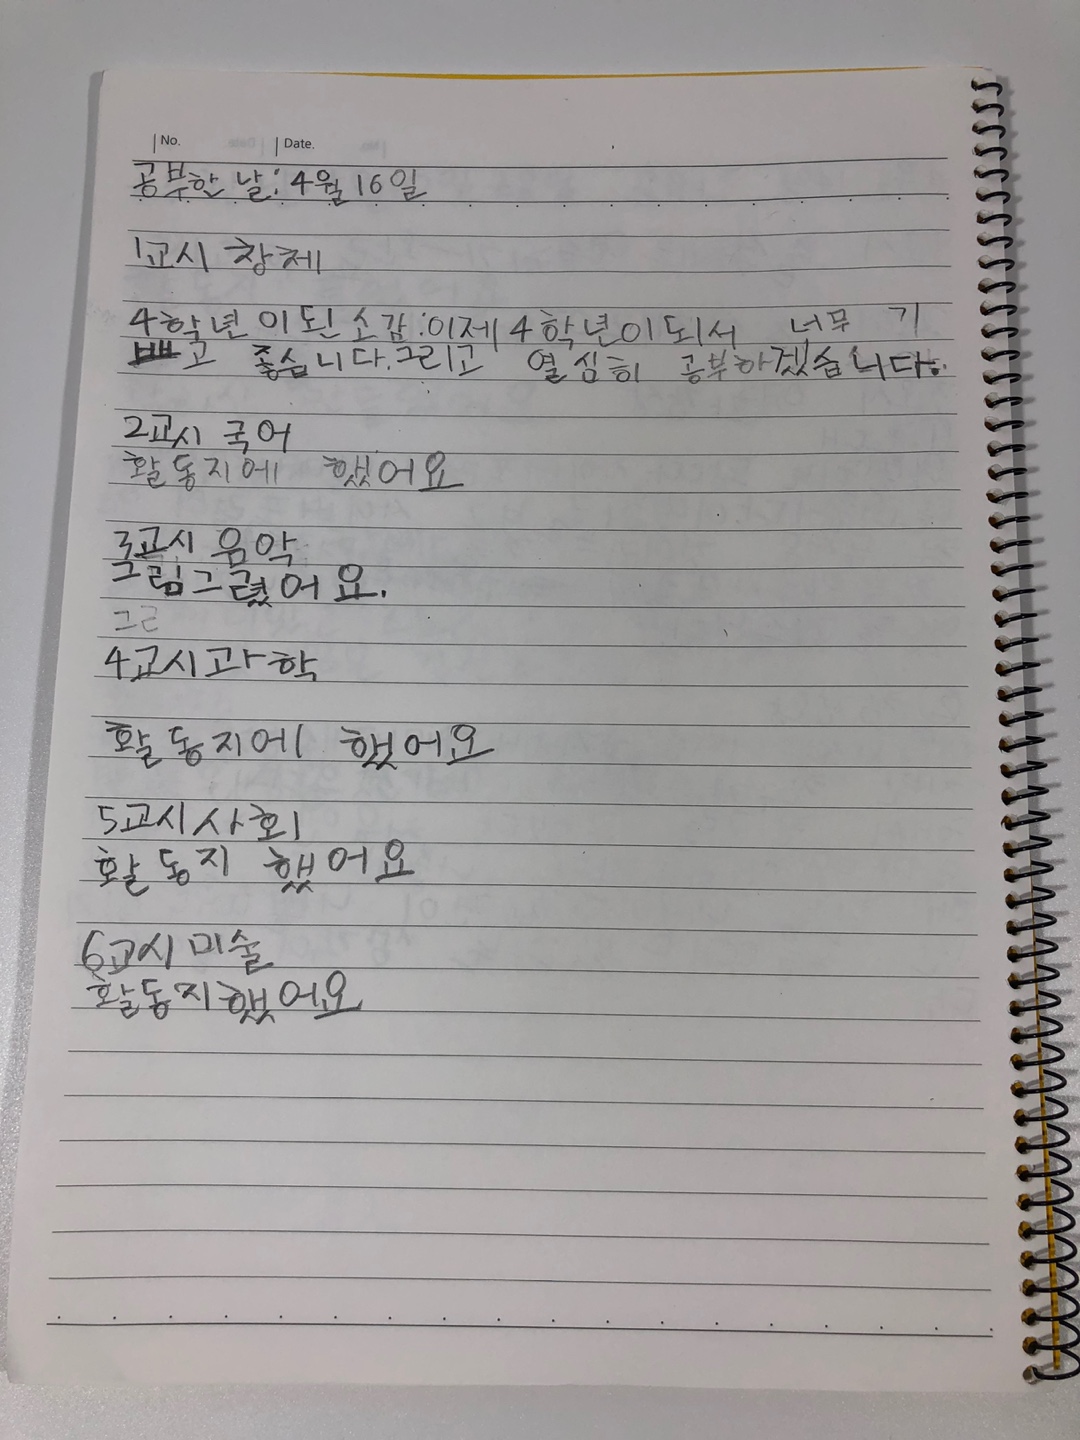 No. Date.
공부한 날: 4월 16일
1교시 창체
4학년이 된 소감:이제 4학년이 되서 너무 기
쁘고 좋습니다.그리고 열심히 공부하겠습니다.
2교시 국어
활동지에 했어요
3교시 음악
그림그렸어요.
그리
4교시과학
활동지에 했어요
5교시사회
활동지 했어요
6교시 미술
활동지했어요